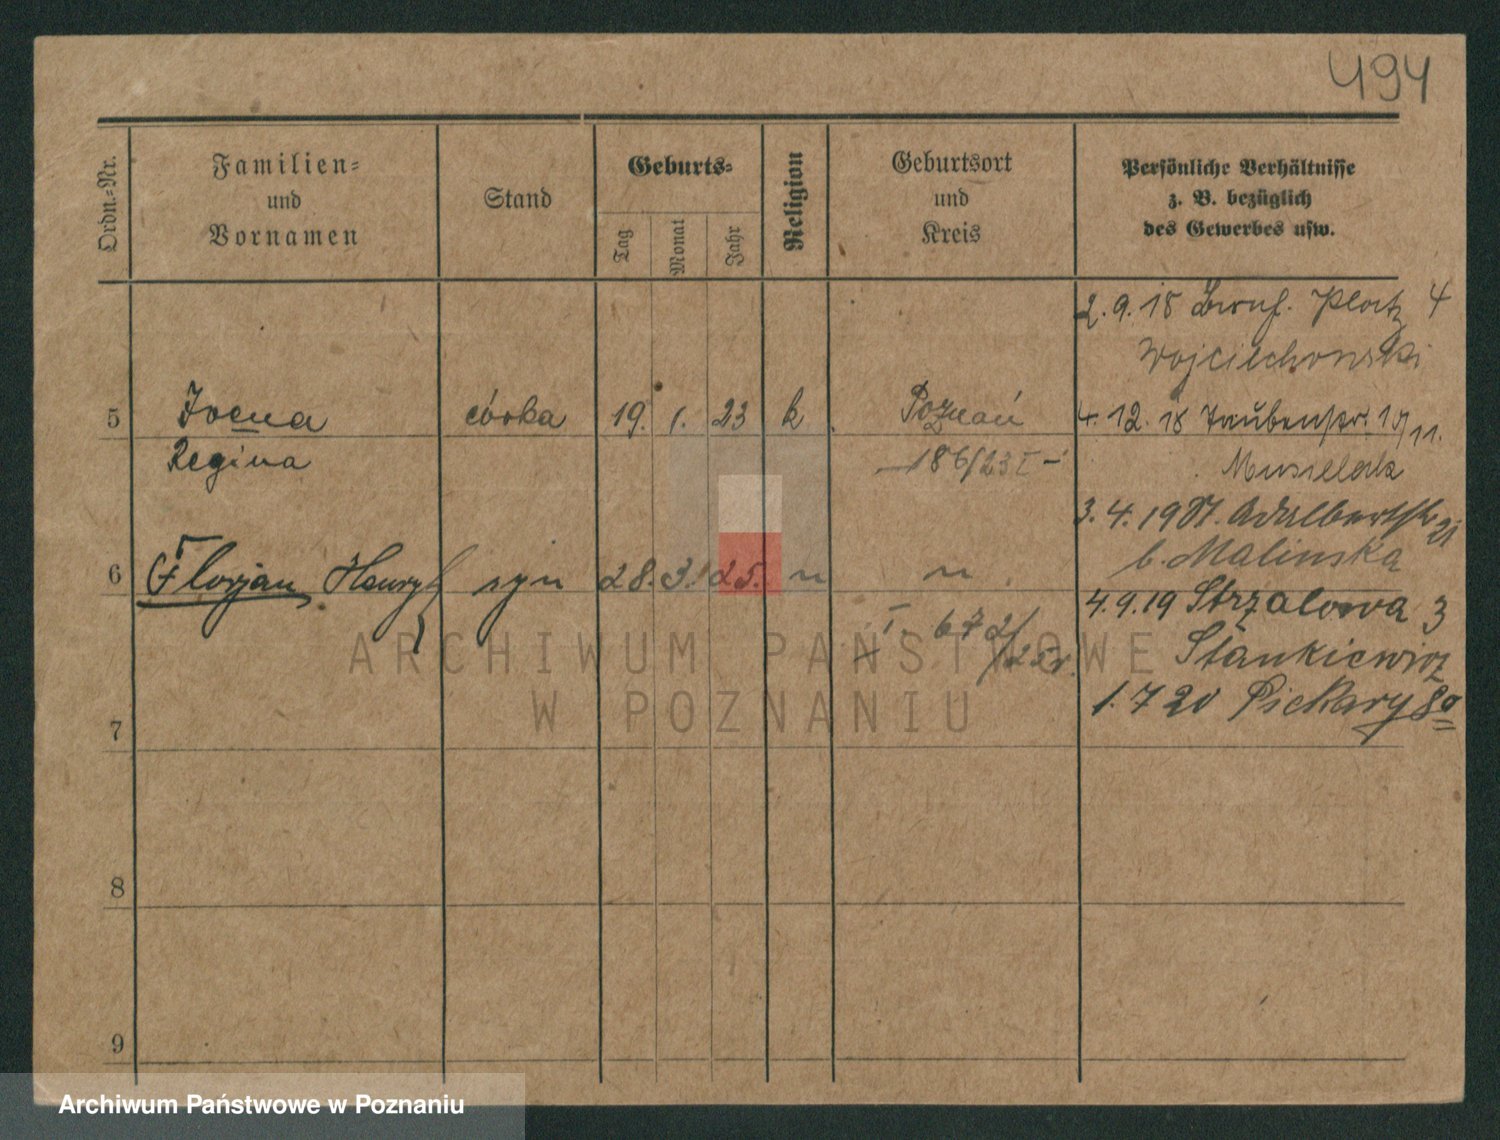 494
Ordn.=Nr.
Familien=
und
Vornamen
Stand
Geburts=
Tag
Monat
Jahr
Religion
Geburtsort
und
Kreis
Persönliche Verhältnisse
z. B. bezüglich
des Gewerbes usw.
2.9.18 Platz 4
Wojciechowski
5 córka 19. 1. 23 k Poznań 4.12.18 Taubenstr.
Regina 186/23 I
3.4.19 St. Adalbertstr
6 Florjan Henryk syn 28. 3. 25. " "
b. Malinska
4.9.19 Strzalowa 3
I. 672/25r.
Stankiewicz
1.7 20 Piekary 8a
7
8
9
ARCHIWUM PAŃSTWOWE
W POZNANIU
Archiwum Państwowe w Poznaniu